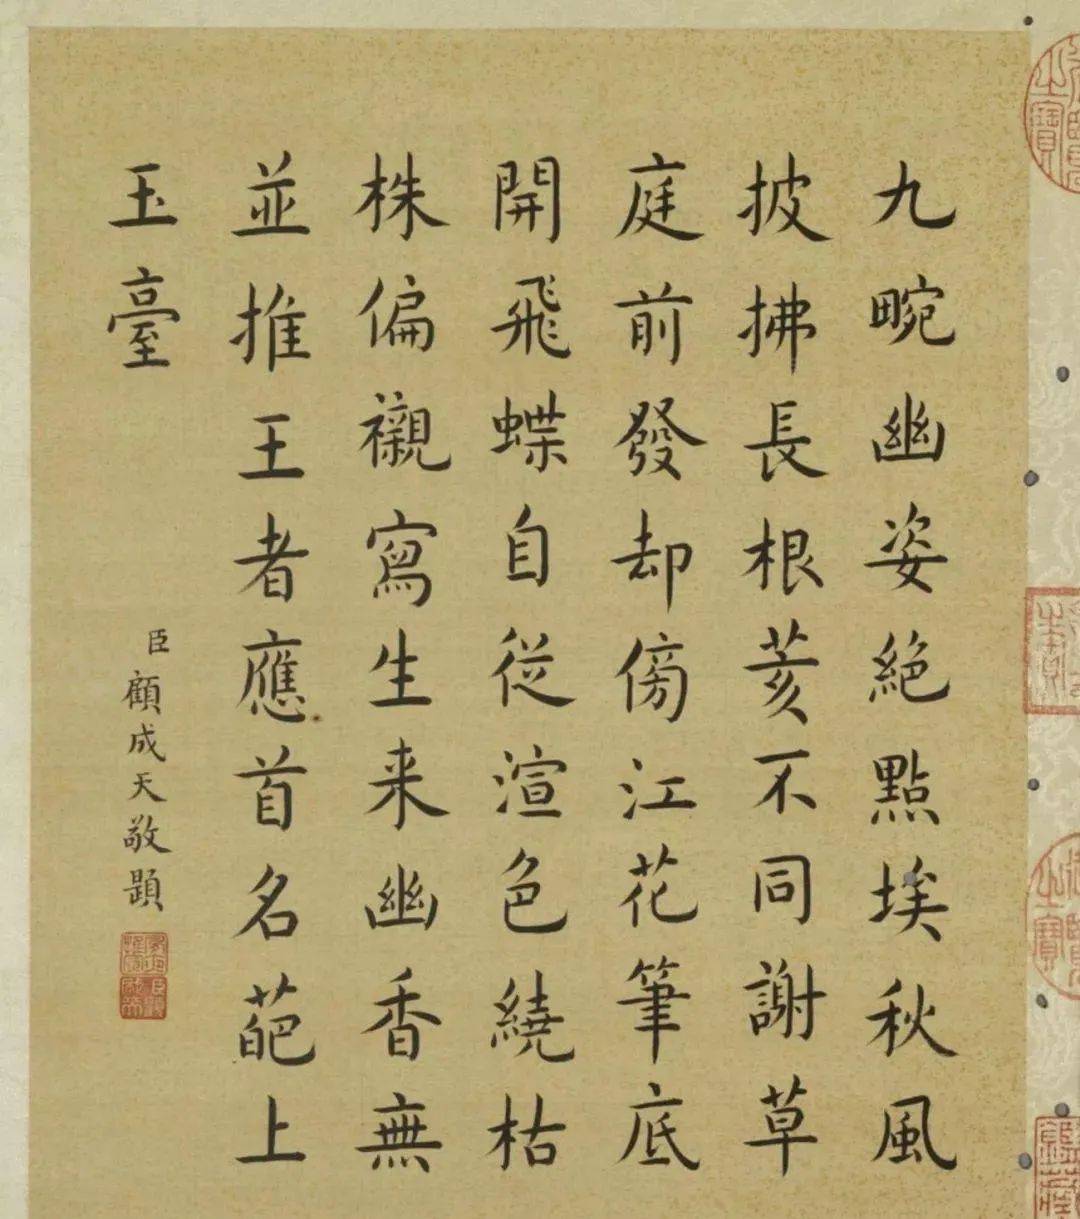 九畹幽姿絕點埃秋風
披拂長根荄不同謝草
庭前發却傍江花筆底
開飛蝶自從渲色繞枯
株偏襯寫生来幽香無
並推王者應首名葩上
玉臺
臣顧成天敬題